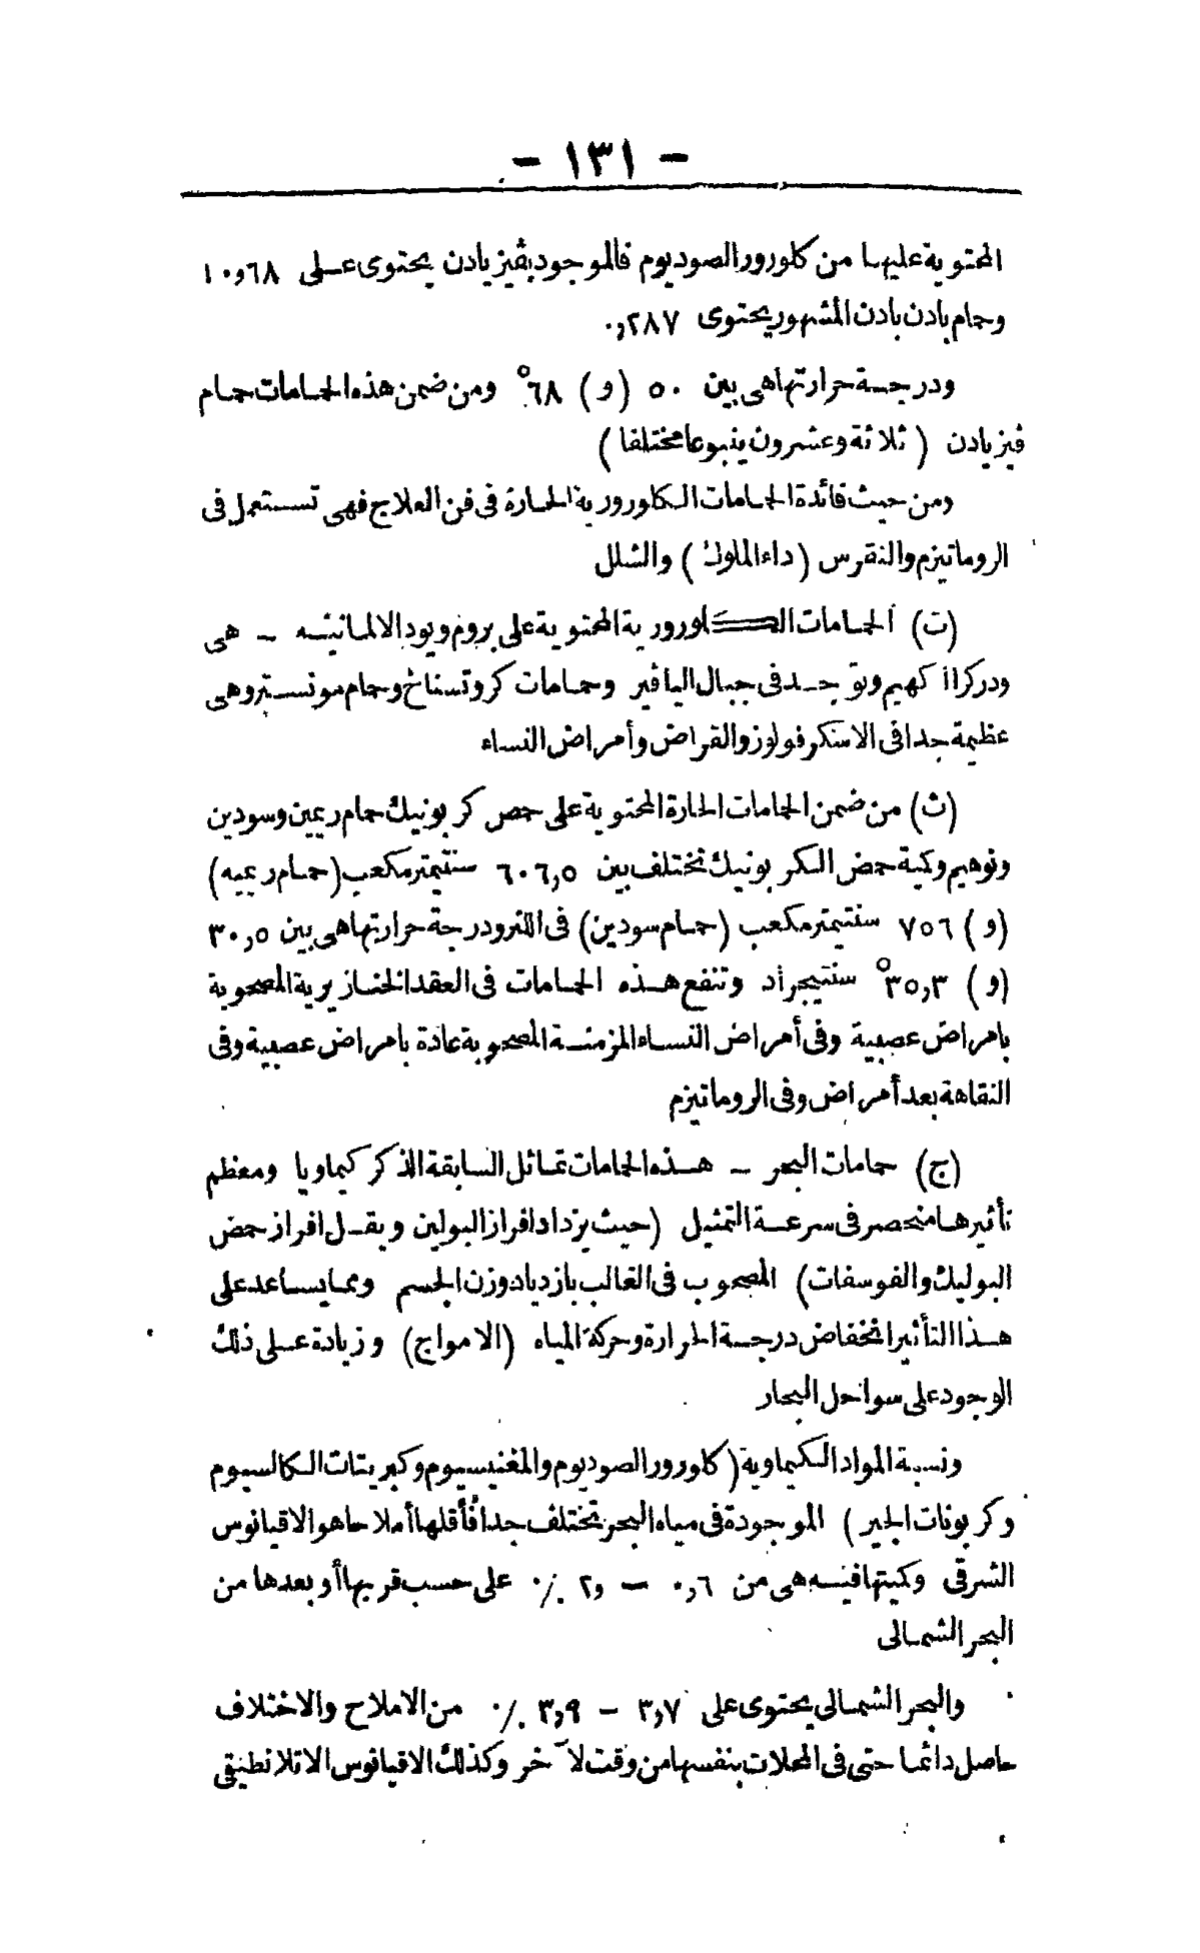 - ١٣١ -
المحتوية عليها من كلورور الصوديوم فالموجود بڤيزبادن يحتوى على ٦٨و١٠
وحمام بادن بادن المشهور يحتوى ٢٨٧,٠
ودرجة حرارتها هى بين ٥٠ (و) ٦٨° ومن ضمن هذه الحمامات حمام
ڤيزبادن (ثلاثة وعشرون ينبوعا مختلفا)
ومن حيث فائدة الحمامات الكلورورية الحارة فى فن العلاج فهى تستعمل فى
الروماتيزم والنقرس (داء الملوك) والشلل
(ت) الحمامات الكلورورية المحتوية على بروم ويود الالمانية - هى
ودركراأ كهيم وتوجد فى جبال الباڤير وحمامات كروتسناخ وحمام مونستر وهى
عظيمة جدا فى الاسكرفولوز والقراض وأمراض النساء
(ث) من ضمن الحمامات الحارة المحتوية على حمض كربونيك حمام ريمين وسودين
ونوهيم وكمية حمض الكربونيك تختلف بين ٦٠٦,٥ سنتيمتر مكعب (حمام ريميه)
(و) ٧٥٦ سنتيمتر مكعب (حمام سودين) فى اللترو درجة حرارتها هى بين ٣٠,٥
(و) ٣٥,٣° سنتيجراد وتنفع هذه الحمامات فى العقد الخنازيرية المصحوبة
بامراض عصبية وفى أمراض النساء المزمنة المصحوبة عادة بامراض عصبية وفى
النقاهة بعد أمراض وفى الروماتيزم
(ج) حمامات البحر - هذه الحمامات تماثل السابقة الذكر كيماويا ومعظم
تأثيرها منحصر فى سرعة التمثيل (حيث يزداد افراز البولين ويقل افراز حمض
البوليك والفوسفات) المصحوب فى الغالب بازدياد وزن الجسم ومما يساعد على
هذا التأثير انخفاض درجة الحرارة وحركة المياه (الامواج) وزيادة على ذلك
الوجود على سواحل البحار
ونسبة المواد الكيماوية (كلورور الصوديوم والمغنيسيوم وكبريتات الكالسيوم
وكربونات الجير) الموجودة فى مياه البحر تختلف جدا فأقلها أملاحا هو الاقيانوس
الشرقى وكميتها فيه هى من ٠,٦ - ٢و ٠/٠ على حسب قربها أو بعدها من
البحر الشمالى
والبحر الشمالى يحتوى على ٣,٧ - ٣,٩ ٠/٠ من الاملاح والاختلاف
حاصل دائما حتى فى المحلات بنفسها من وقت لآخر وكذلك الاقيانوس الاتلانطيقى